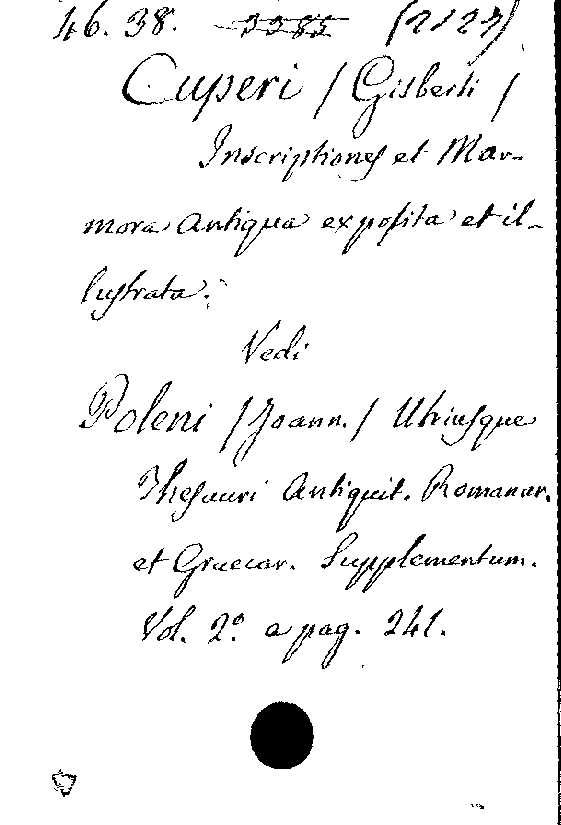 46. 38. 3385 (2123)
Cuperi / Gisberti /
Inscriptiones et Mar-
mora Antiqua exposita et il-
lustrata.
Vedi
Poleni / Joann. / Utriusque
Thesauri Antiquit. Romanar.
et Graecar. Supplementum.
Vol. 2º a pag. 241.